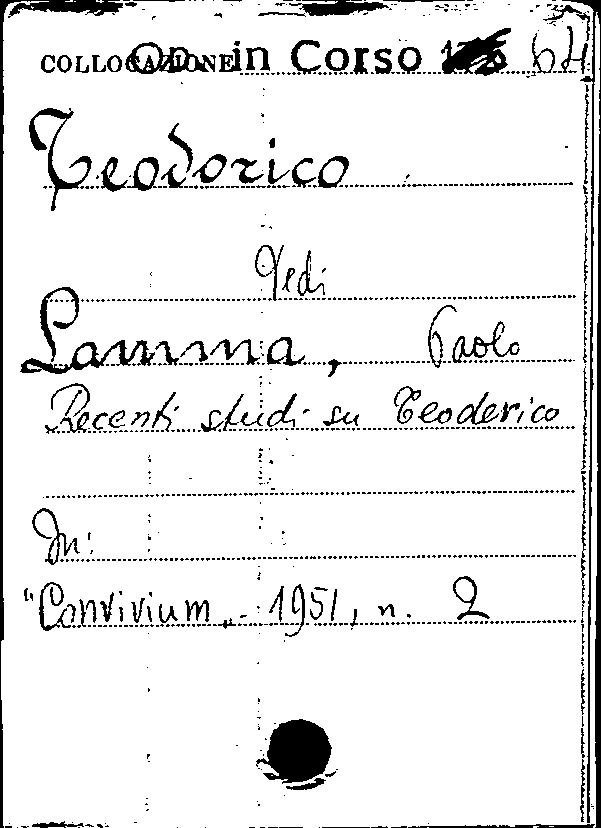 COLLOCAZIONE Op. in Corso 64
Teodorico
Vedi
Lamma, Paolo
Recenti studi su Teoderico
In:
"Convivium„ - 1951, n. 2